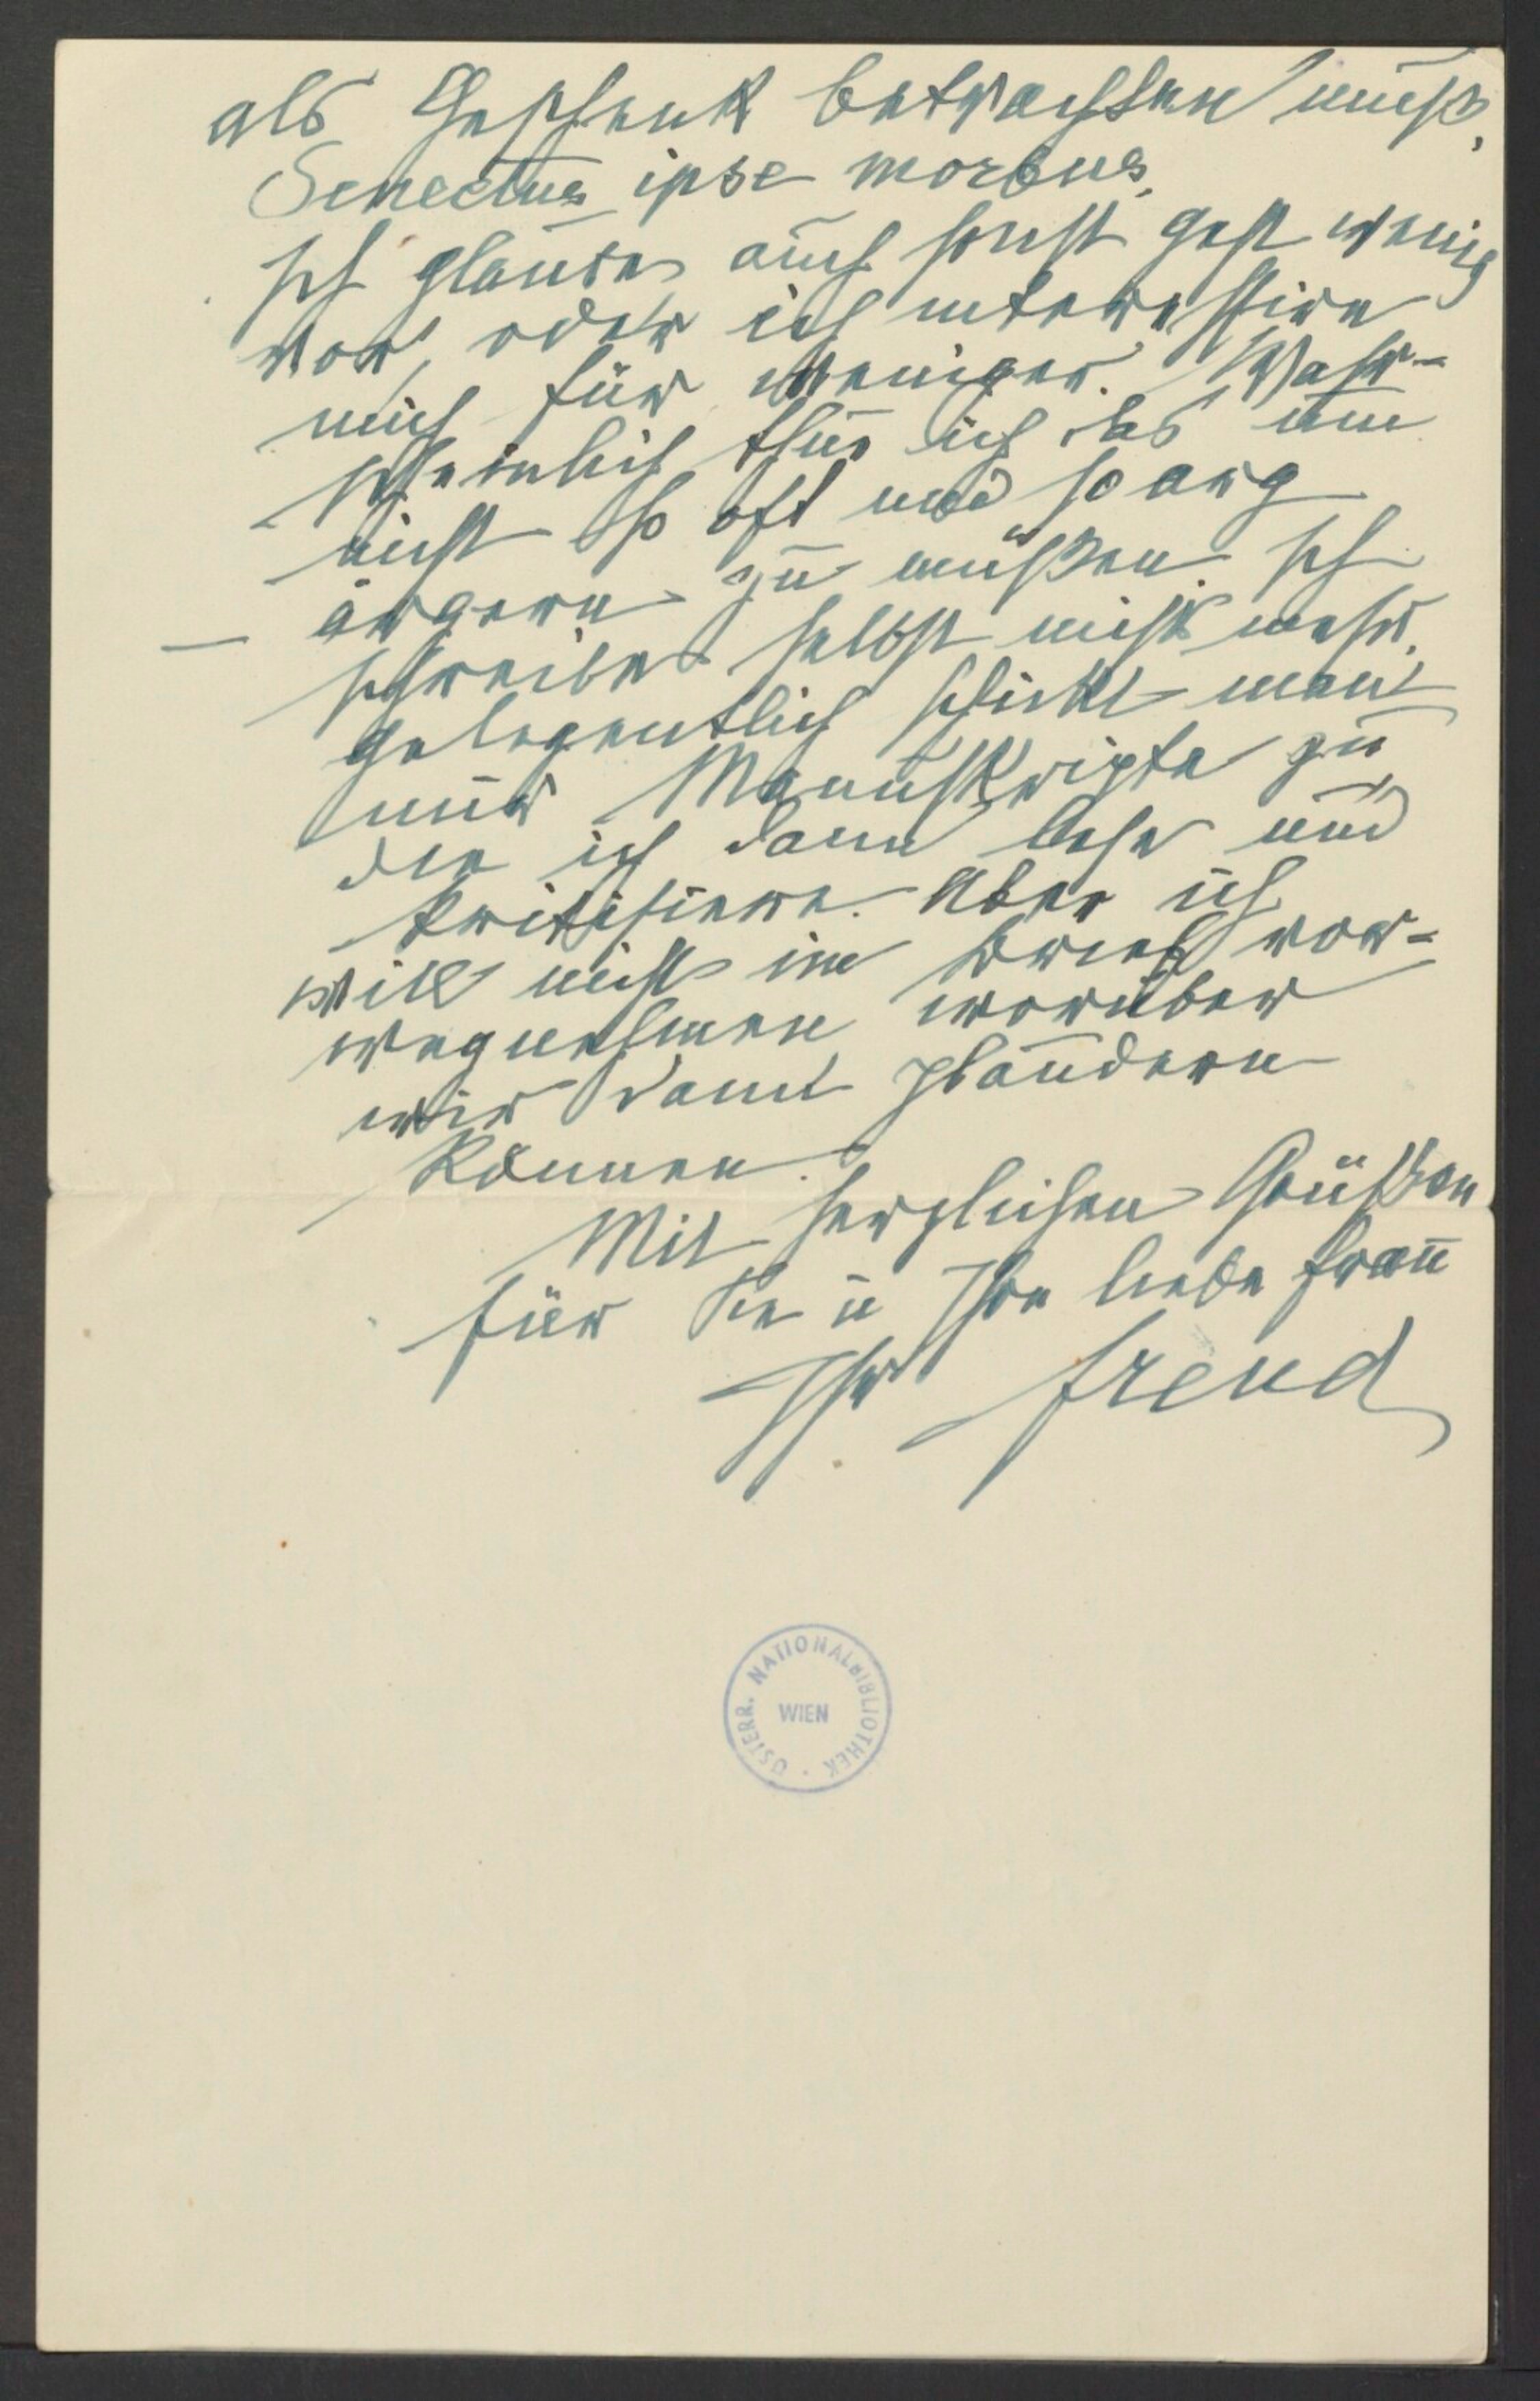 als Geschenk betrachten muß.
Senectus ipse morbus.
Ich glaube auch sonst geht wenig
vor, oder ich interessire
mich für weniger. Wahr-
scheinlich thue ich es um
nicht so oft und so arg
ärgern zu müßen. Ich
schreibe selbst nicht mehr,
gelegentlich schickt man
mir Manuskripte zu
die ich dann lese und
kritisiere. Aber ich
will nicht im Brief vor-
wegnehmen worüber
wir dann plaudern
können.
Mit herzlichen Grüßen
für Sie u Ihre liebe Frau
Ihr Freud
ÖSTERR. NATIONALBIBLIOTHEK · WIEN